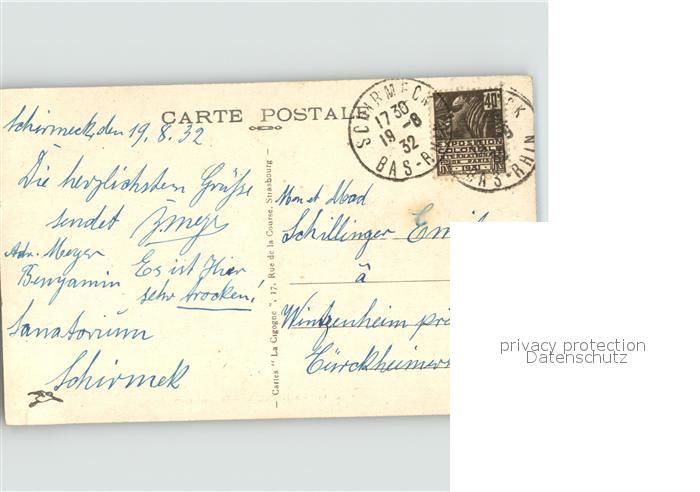 CARTE POSTALE
Schirmeck, den 19.8.32
Die herzlichsten Grüsse
sendet
Adr. Meyer
Benyamin Es ist Hier
sehr trocken!
Sanatorium
Schirmek
Cartes " La Cigogne ", 17, Rue de la Course, Strasbourg
SCHIRMECK
17 30
19 -8
32
BAS-RHIN
40
EXPOSITION
COLONIALE
INTERNATIONALE
PARIS 1931
Mon et Mad
Schillinger Emil
à
Wintzenheim
Türckheimer
privacy protection
Datenschutz